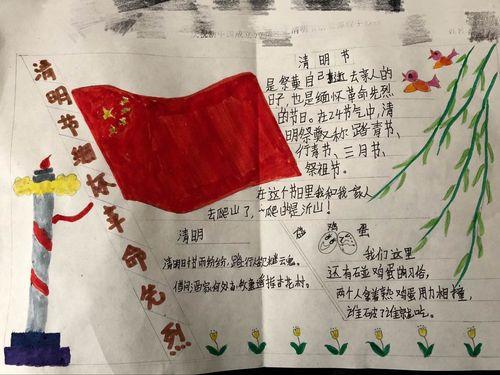 清明节缅怀革命先烈
清明节
是祭奠自己逝去亲人的
日子,也是缅怀革命先烈
的节日。在24节气中,清
明祭奠又称踏青节、
行青节、三月节、
祭祖节。
在这个节日里我和我家人
去爬山了,爬的是沂山!
清明
清明日时雨纷纷,路行人欲断魂。
借问酒家何处有,牧童遥指杏花村。
碰鸡蛋
我们这里
还有碰鸡蛋的习俗,
两个人拿着熟鸡蛋用力相撞,
谁破了谁就吃。